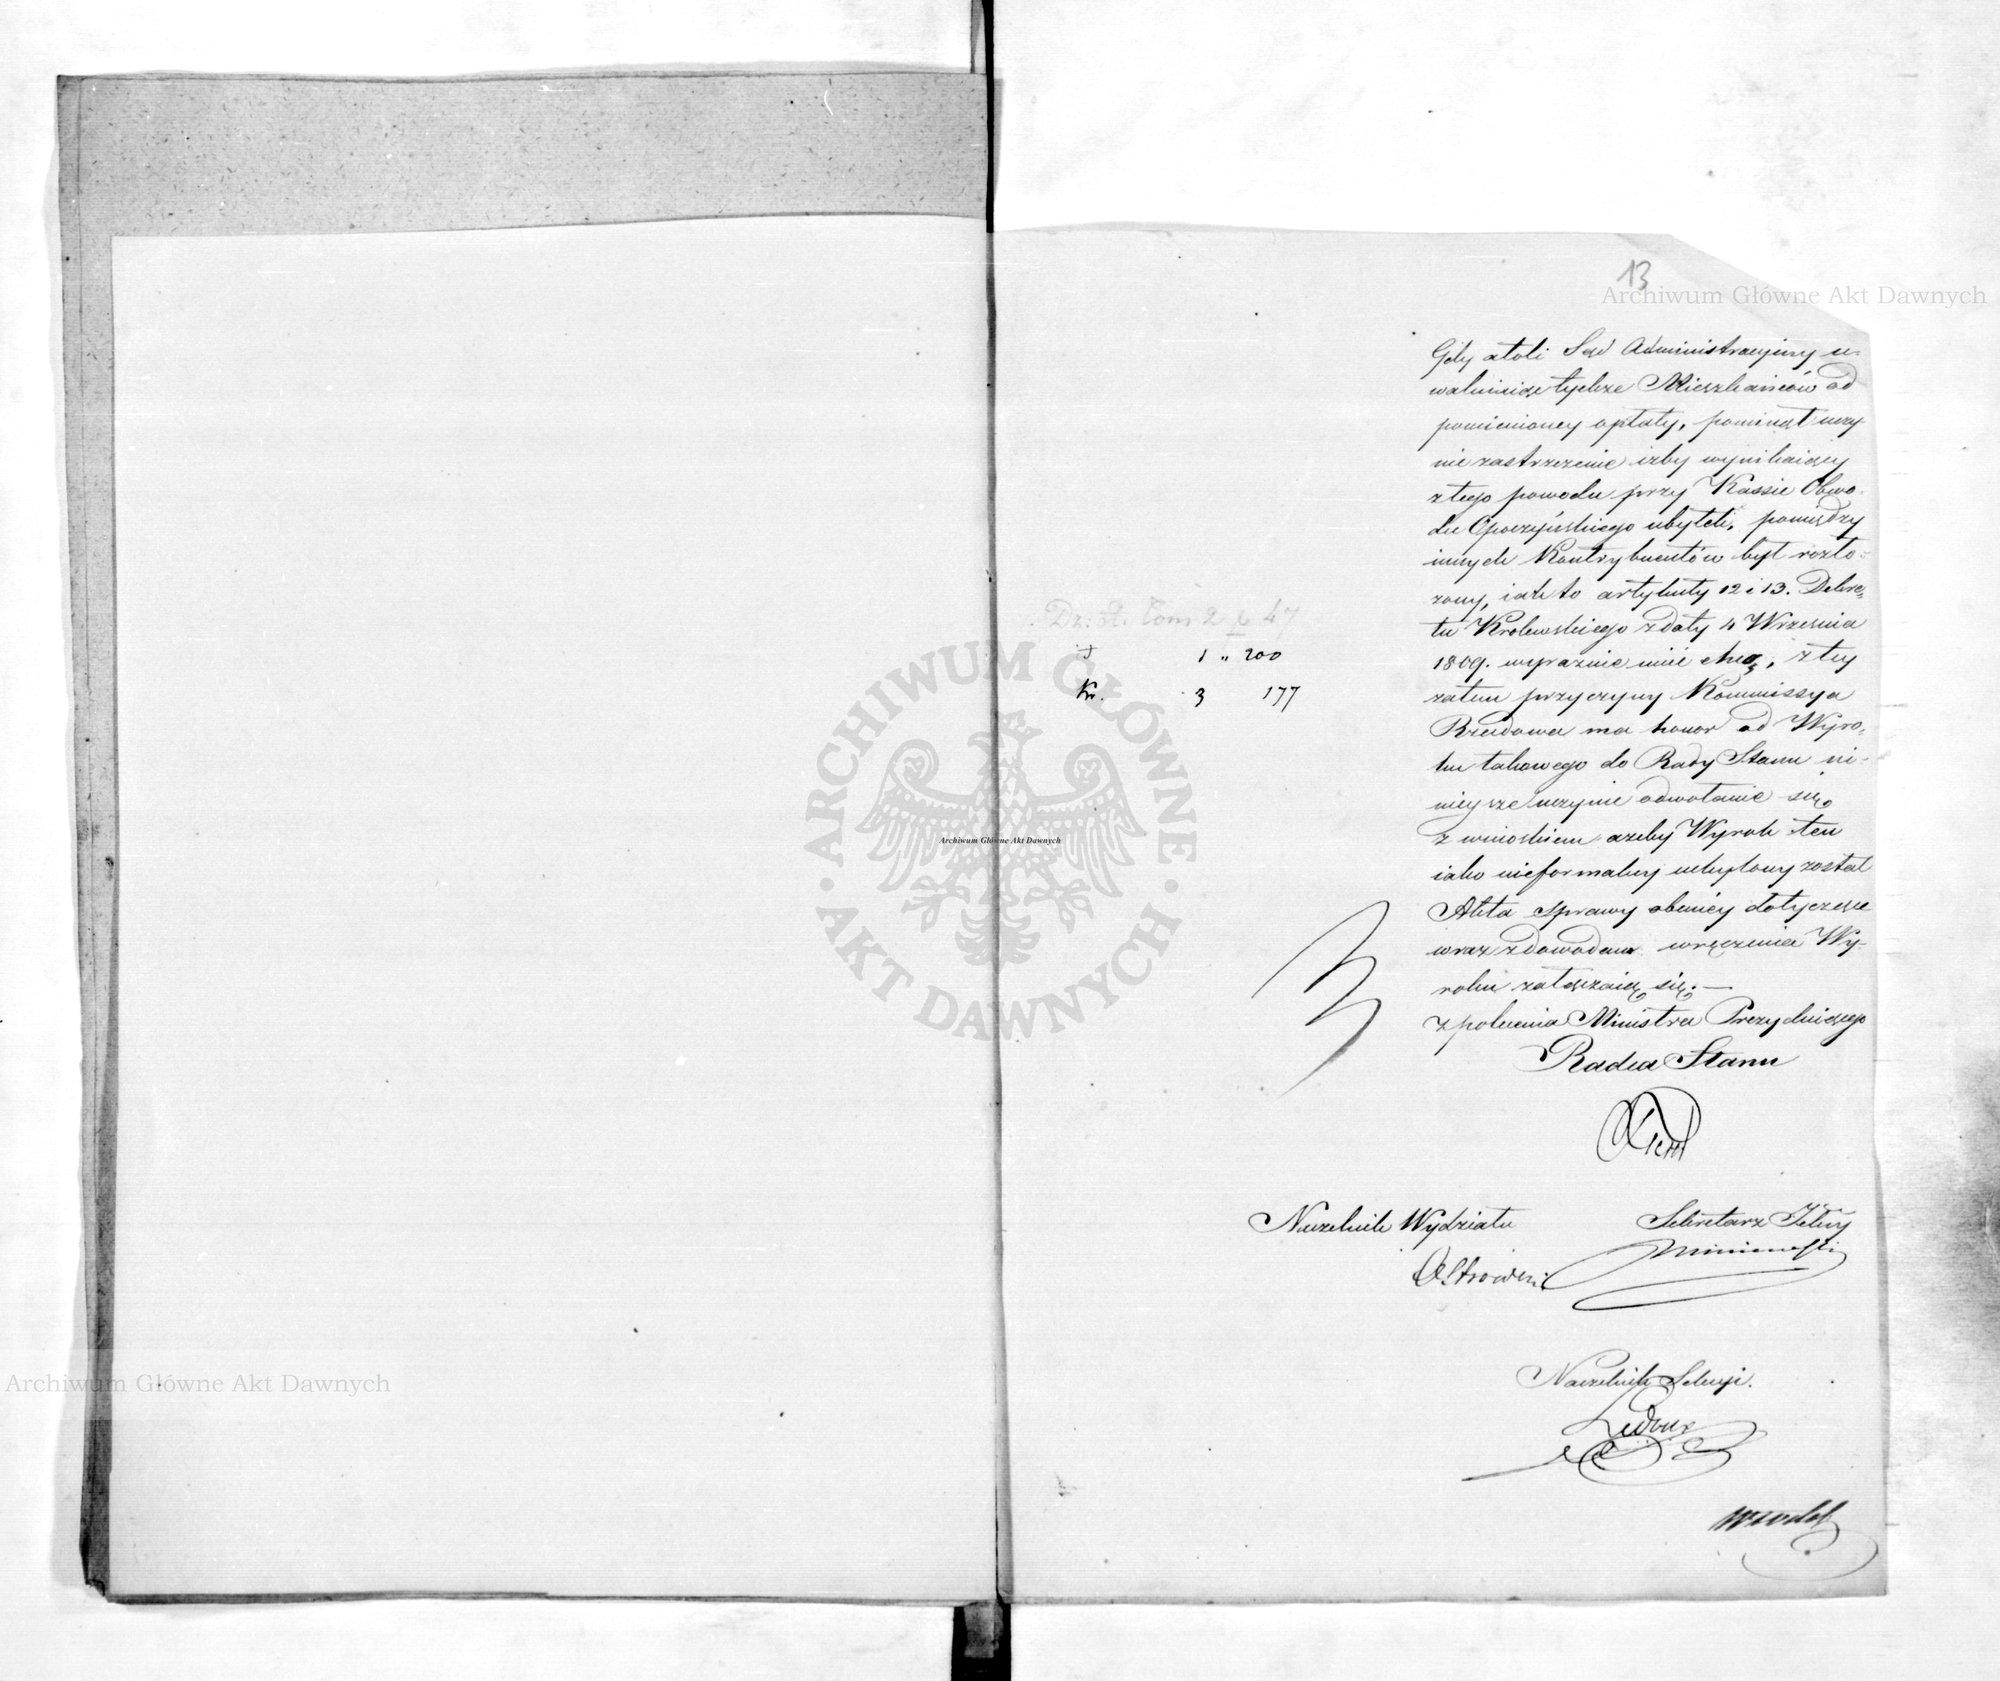 13
Archiwum Główne Akt Dawnych
Gdy atoli Sąd Administracyjny u-
walniaiąc tychże Mieszkańców od
pomienioney opłaty, pominął uczy-
nić zastrzeżenie iżby wynikaiący
z tego powodu przy Kassie Obwo-
du Opoczyńskiego ubytek, pomiędzy
innych Kontrybuentów był rozło-
żony, iak to artykuły 12 i 13. Dekre-
tu Królewskiego z daty 4 Września
1809. wyraźnie mieć chcą, z tey
zatem przyczyny Kommissya
Rządowa ma honor od Wyro-
ku takowego do Rady Stanu ni-
nieysze uczynić odwołanie się
z wnioskiem ażeby Wyrok ten
iako nieformalny uchylony został
Akta sprawy obecney dotyczące
wraz z dowodem wręczenia Wy-
roku załączaią się. —
Z polecenia Ministra Prezyduiącego
Radca Stanu
Naczelnik Wydziału
Sekretarz Jlny
Ostrowski
Naczelnik Sekcyi.
Dz: St. Tom 2 k 47
1 „ 200
Kr. 3 177
ARCHIWUM GŁÓWNE AKT DAWNYCH
Archiwum Główne Akt Dawnych
Archiwum Główne Akt Dawnych